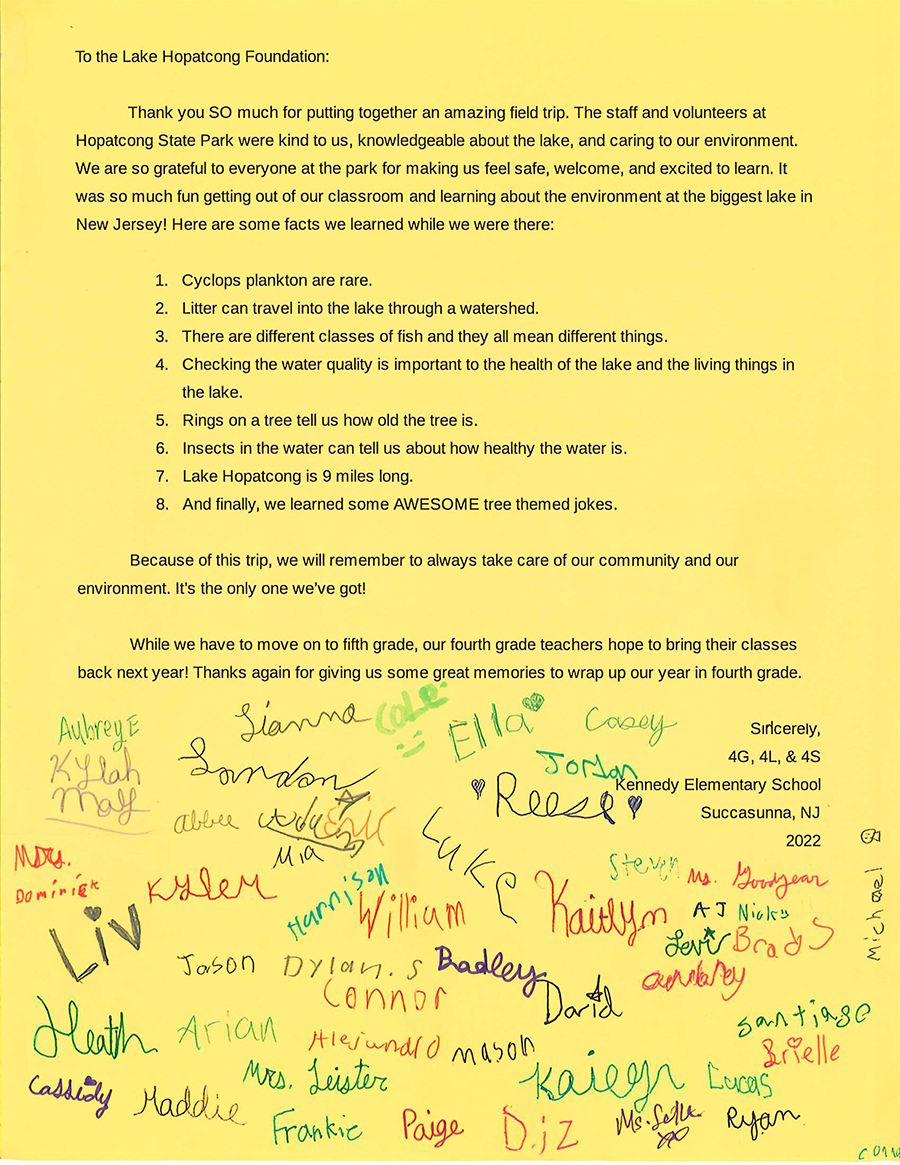 To the Lake Hopatcong Foundation:
Thank you SO much for putting together an amazing field trip. The staff and volunteers at
Hopatcong State Park were kind to us, knowledgeable about the lake, and caring to our environment.
We are so grateful to everyone at the park for making us feel safe, welcome, and excited to learn. It
was so much fun getting out of our classroom and learning about the environment at the biggest lake in
New Jersey! Here are some facts we learned while we were there:
1. Cyclops plankton are rare.
2. Litter can travel into the lake through a watershed.
3. There are different classes of fish and they all mean different things.
4. Checking the water quality is important to the health of the lake and the living things in
the lake.
5. Rings on a tree tell us how old the tree is.
6. Insects in the water can tell us about how healthy the water is.
7. Lake Hopatcong is 9 miles long.
8. And finally, we learned some AWESOME tree themed jokes.
Because of this trip, we will remember to always take care of our community and our
environment. It's the only one we've got!
While we have to move on to fifth grade, our fourth grade teachers hope to bring their classes
back next year! Thanks again for giving us some great memories to wrap up our year in fourth grade.
Sincerely,
4G, 4L, & 4S
Kennedy Elementary School
Succasunna, NJ
2022
Aubrey E
Gianna
Cole
Ella
Casey
Kylah
May
London
Jordan
Reese
abbee
Eric
Mia
Luke
Mrs.
Dominick
Kyler
Harrison
William
Steven
Ms. Goodyear
Kaitlyn
AJ
Nicky
Michael
Liv
Levi
Brad S
Jason
Dylan. S
Badley
Connor
David
Santiago
Heath
Arian
Alejandro
mason
Brielle
Cassidy
Maddie
Mrs. Leister
Lucas
Frankie
Paige
Ryan